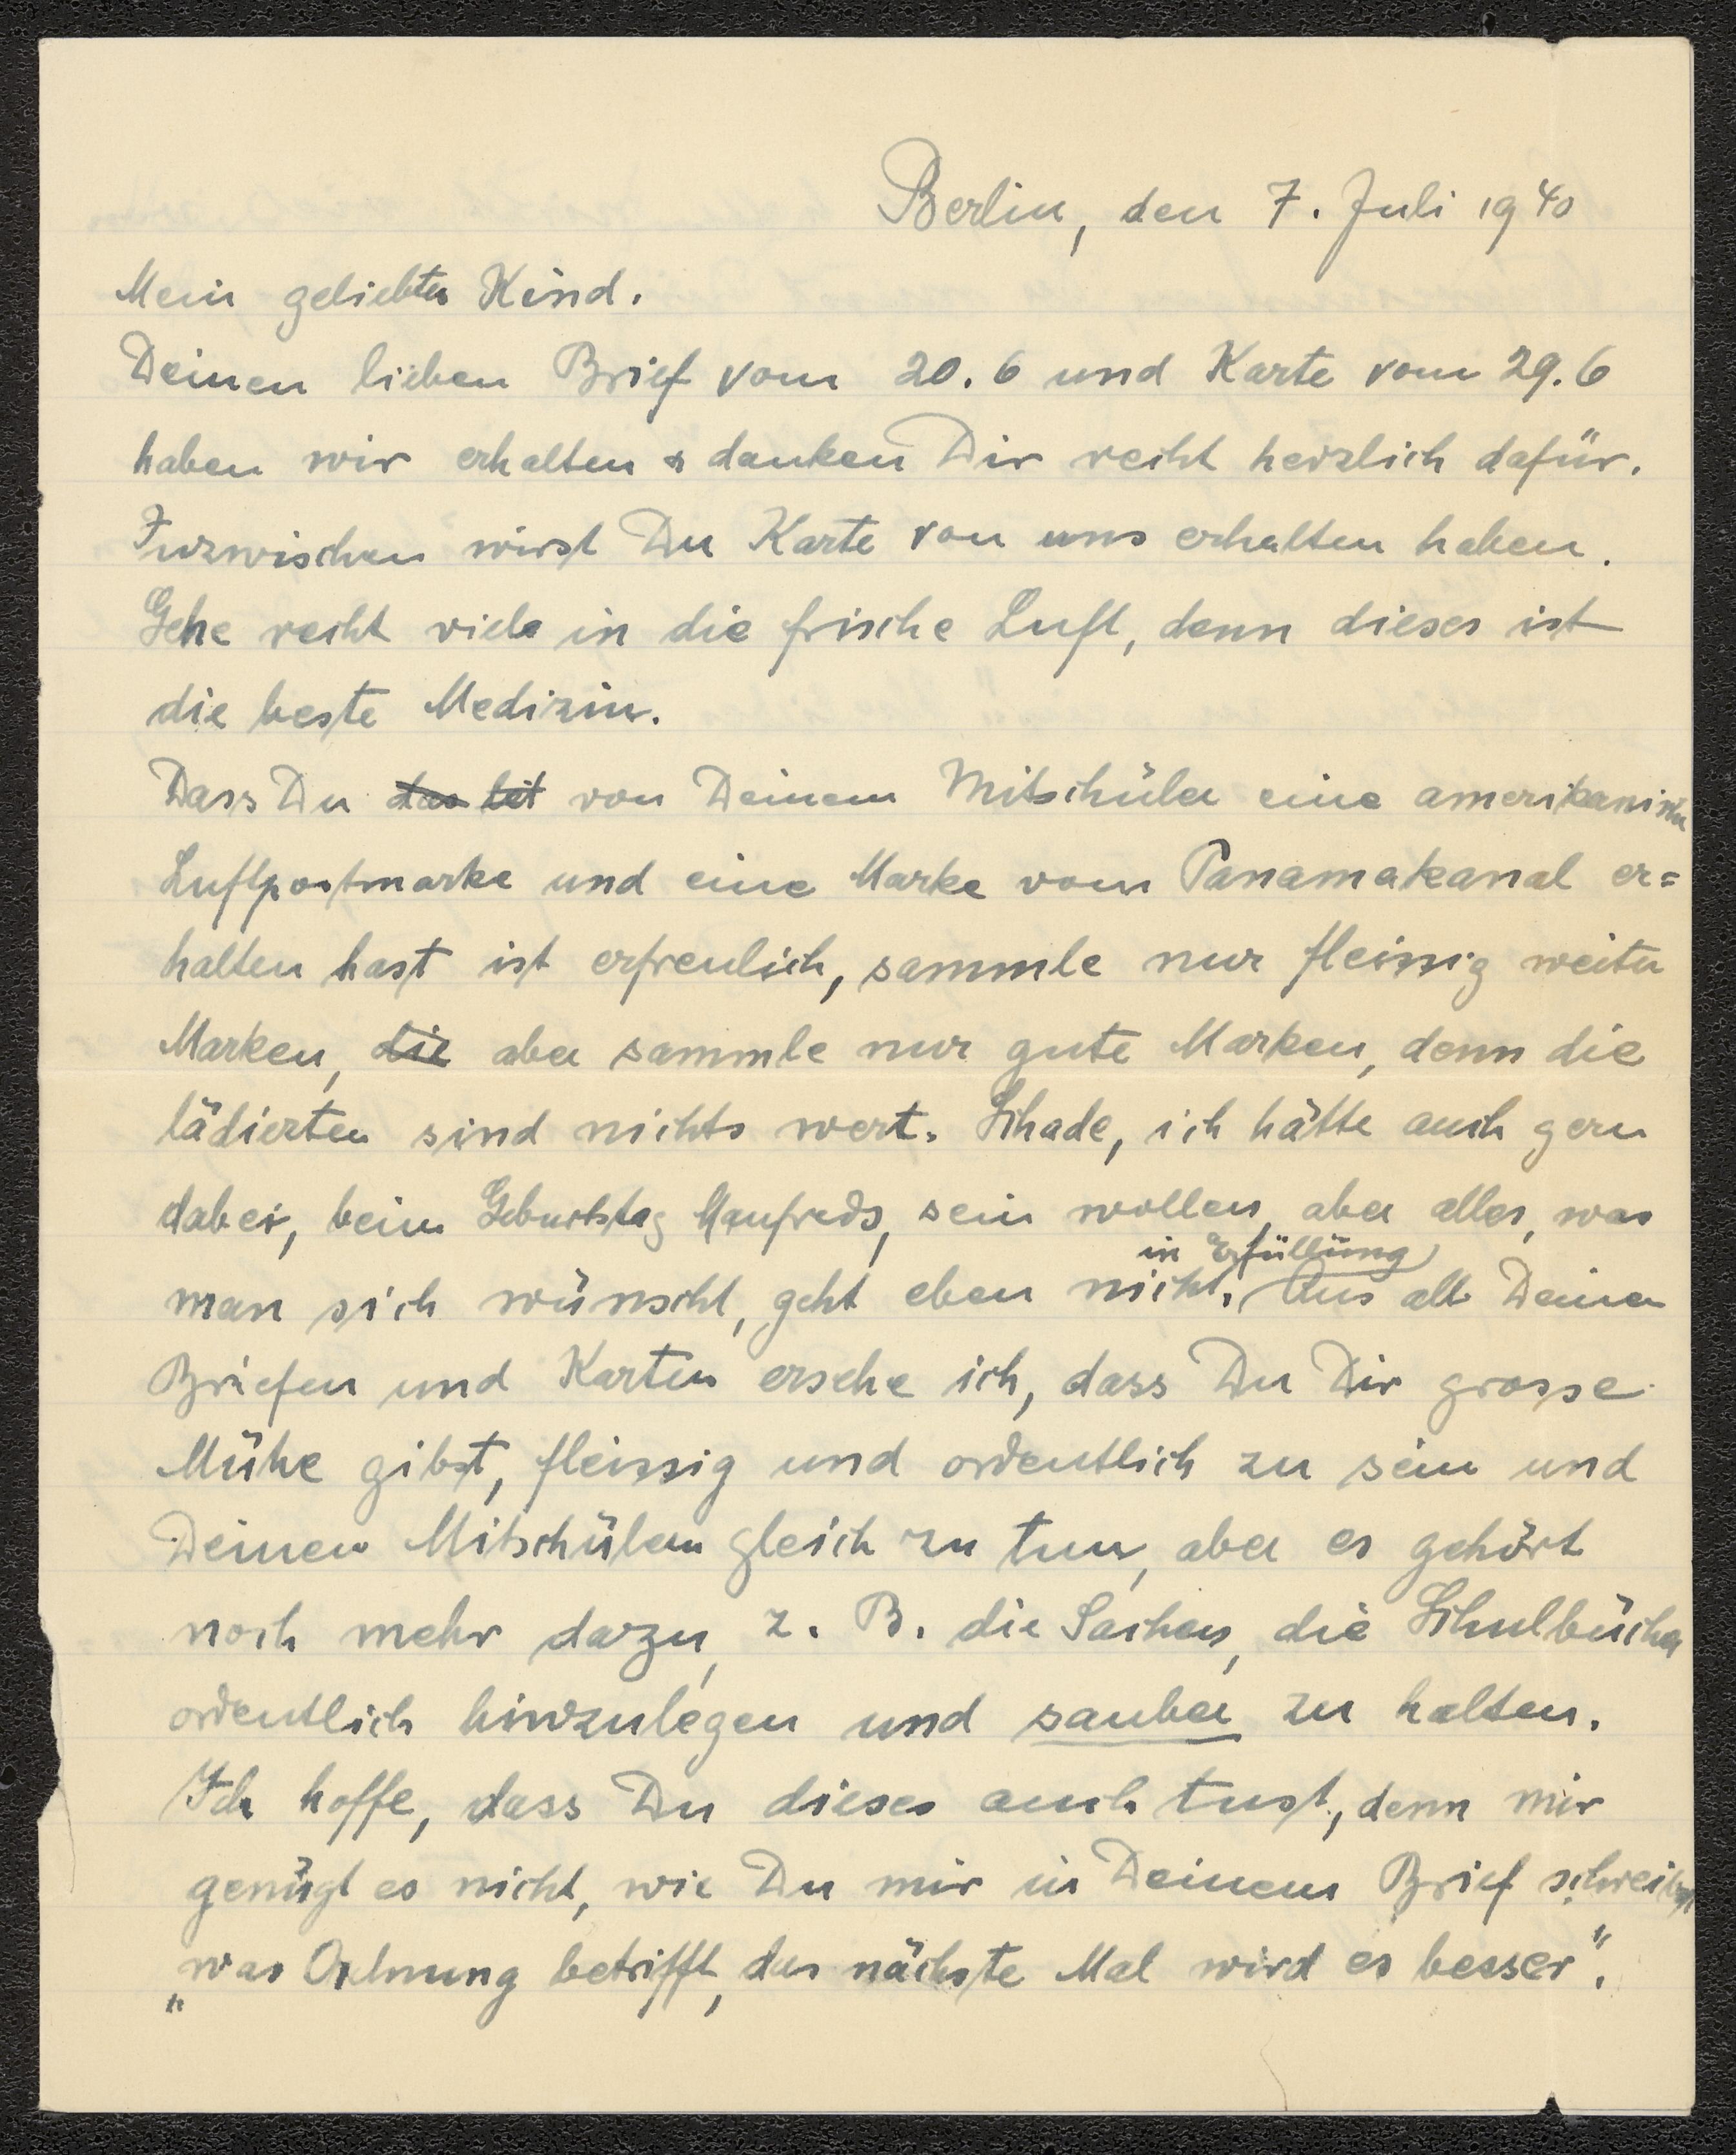 Berlin, den 7. Juli 1940
Mein geliebtes Kind.
Deinen lieben Brief vom 20.6 und Karte vom 29.6
haben wir erhalten & danken Dir recht herzlich dafür.
Inzwischen wirst Du Karte von uns erhalten haben.
Gehe recht viele in die frische Luft, denn dieses ist
die beste Medizin.
Dass Du das von Deinem Mitschüler eine amerikanische
Luftpostmarke und eine Marke vom Panamakanal er=
halten hast ist erfreulich, sammle nur fleissig weiter
Marken, die aber sammle nur gute Marken, denn die
lädierten sind nichts wert. Schade, ich hätte auch gern
dabei, beim Geburtstag Manfreds, sein wollen, aber alles, was
in Erfüllung
man sich wünscht, geht eben nicht. Aus all Deinen
Briefen und Karten ersehe ich, dass Du Dir grosse
Mühe gibst, fleissig und ordentlich zu sein und
Deinen Mitschülern gleich zu tun, aber es gehört
noch mehr dazu, z. B. die Sachen, die Schulbücher
ordentlich hinzulegen und sauber zu halten.
Ich hoffe, dass Du dieses auch tust, denn mir
genügt es nicht, wie Du mir in Deinem Brief schreibst
„was Ordnung betrifft, das nächste Mal wird es besser".